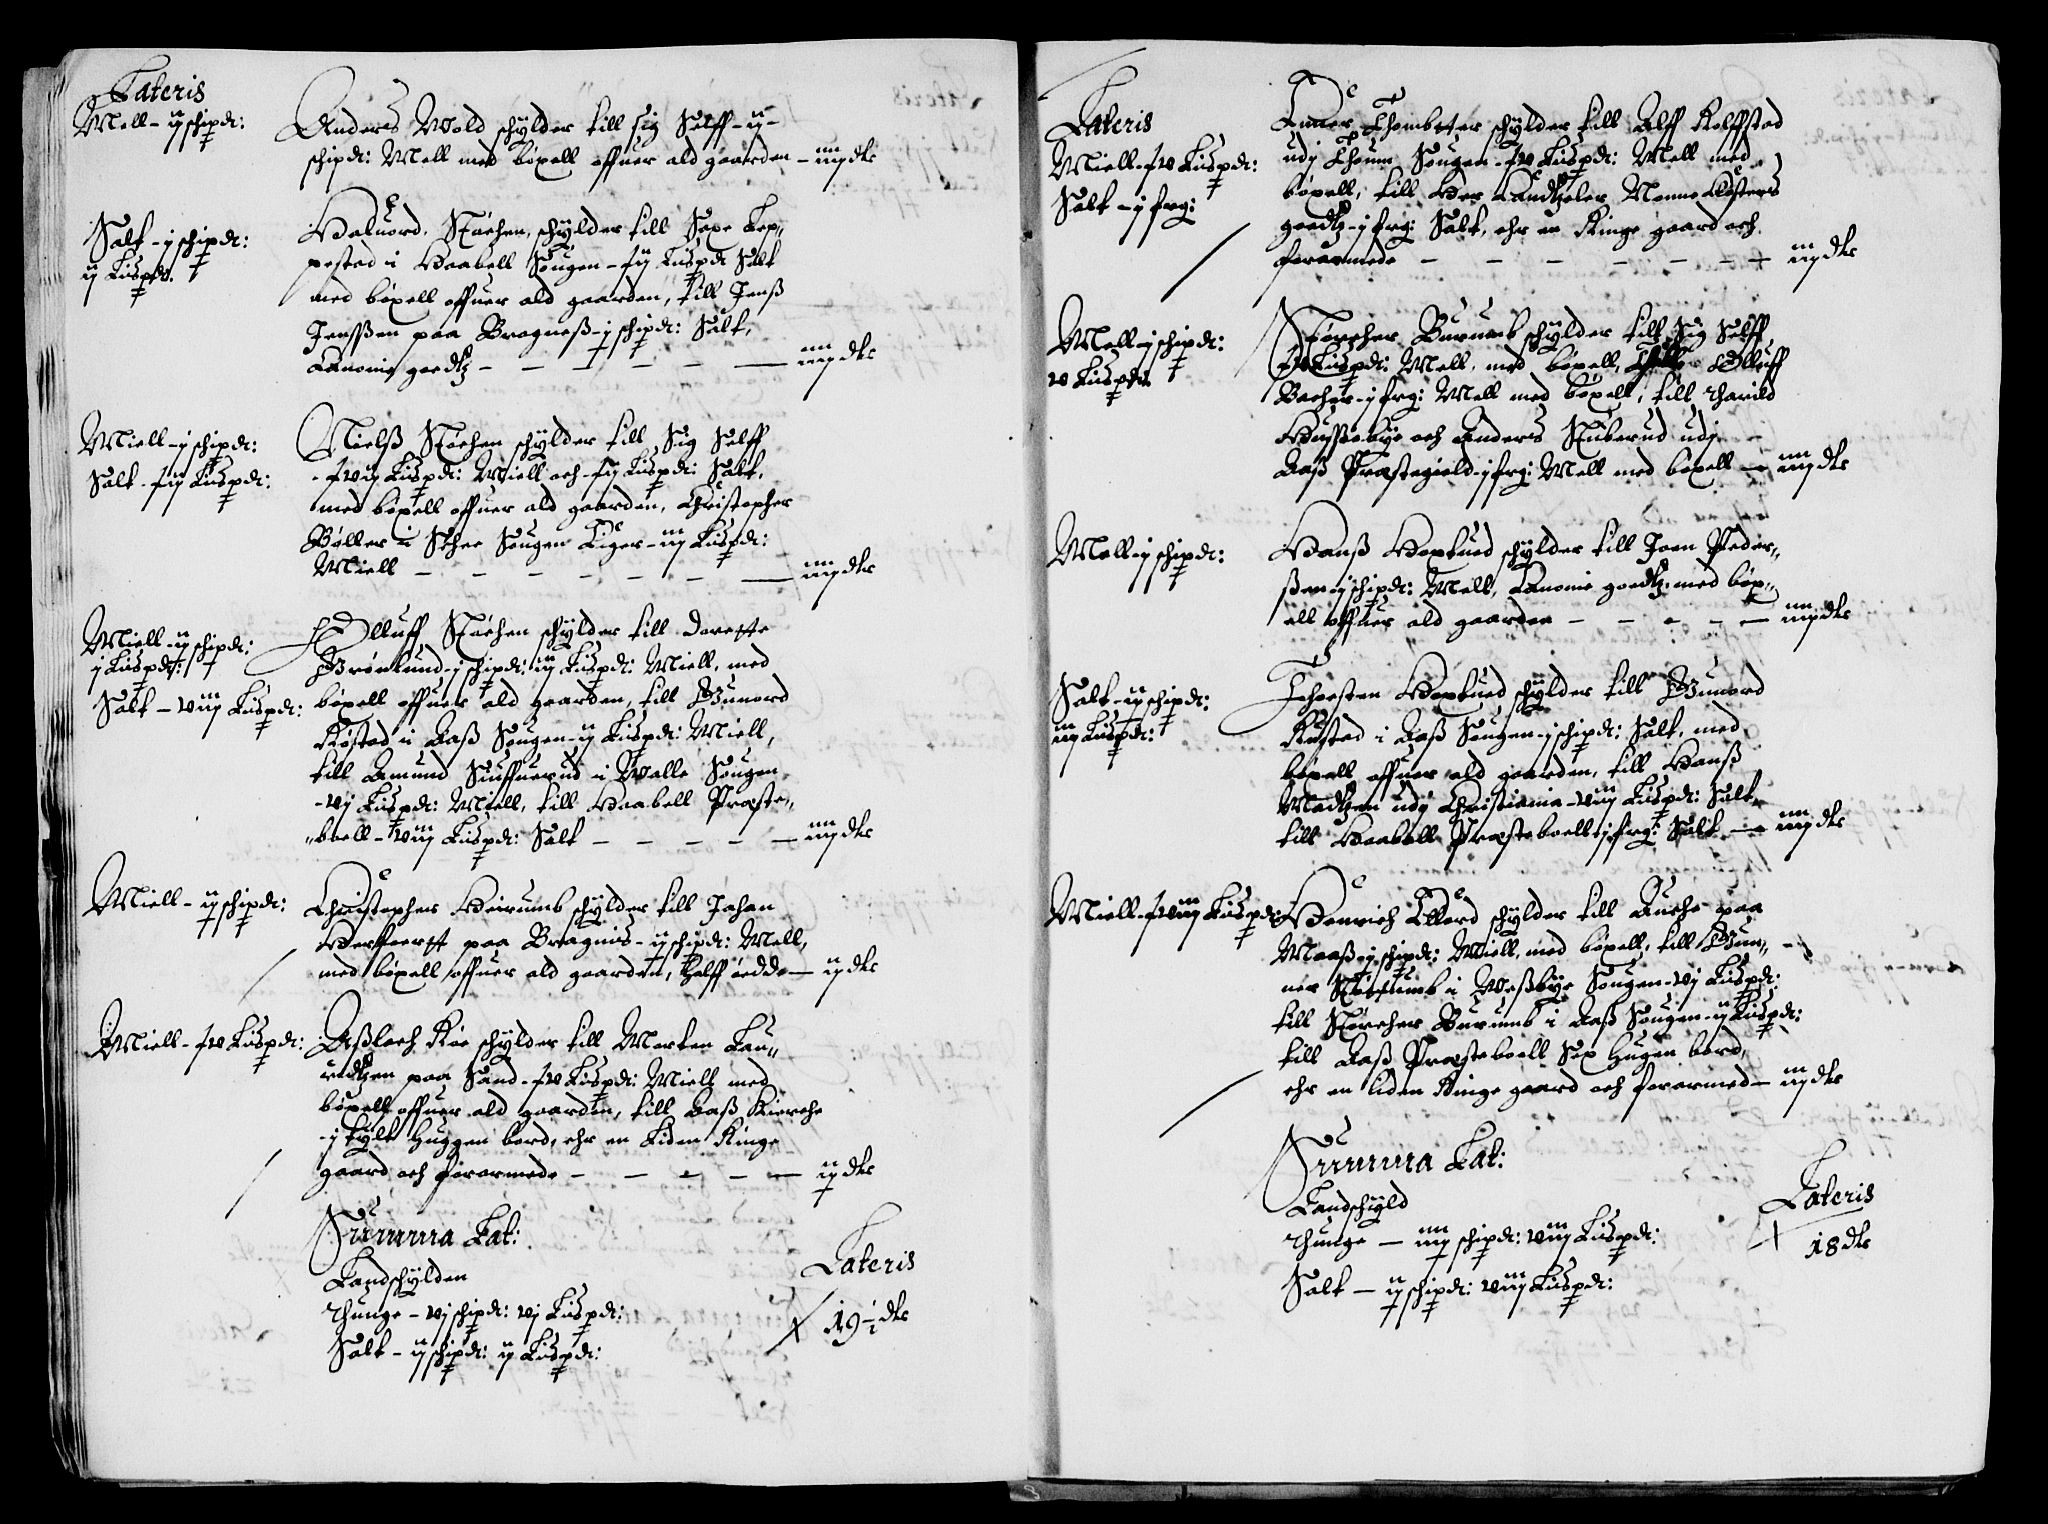 Lateris
Mell - ij schipd:
Anders Wold schylder till sig Selff - ij -
schipd: Mell med bøxell offuer ald gaarden - iiij dlr
Salt - j schipd:
ij Lispd:
Haluord Støchen, schylder till Saxe Lep„
pestad i Haabell Sougen - fij Lispd Salt
med bøxell offuer ald gaarden, till Jenß
Jenssen paa Bragneß - j schipd: Salt,
Canonie goedtz - - - - - iiij dlr
Miell - j schipd:
Salt - fij Lispd:
Nielß Støchen schylder till Sig Selff
- fwij Lispd: Miell och - fij Lispd: Salt,
med bøxell offuer ald gaarden, Christopher
Bøller i Schee Sougen Eiger - iij Lispd:
Miell - - - - - - iiij dlr
Miell - ij schipd:
j Lispd:
Salt - viij Lispd:
Olluff Støchen schylder till Dorette
Grønlund - j schipd: iij Lispd: Miell, med
bøxell offuer ald gaarden, till Gunord
Røstad i Aaß Sougen - ij Lispd: Miell,
till Amund Siuffuerud i Walle Sougen
- vj Lispd: Miell, till Haabell Præste„
„boell - viij Lispd: Salt - - - - - iiij dlr
Miell - ij schipd:
Christopher Heirumb schylder till Johan
Werkverst paa Bragnis - ij schipd: Mell,
med bøxell offuer ald gaarden, halff ødde - ij dlr
Miell - fv Lispd:
Aßlach Røe schylder till Morten Lau„
ridtzen paa Sand - fv Lispd: Miell med
bøxell offuer ald gaarden, till Aaß Kierche
- j fylt Huggen bord, ehr en Liden Ringe
gaard och forarmede - - - - - ij dlr
Summa Lat:
Landschylden
Thunge - vj schipd: vj Lispd:
Salt - ij schipd: ij Lispd:
Lateris
19 ½ dlr
Lateris
Miell - fv Lispd:
Salt - j frg:
Einer Thombter schylder till Alff Rolffstad
udj Thoum Sougen - fv Lispd: Mell med
bøxell, till Her Candtzeler Nonne Closters
goedtz - j frg: Salt, ehr en Ringe gaard och
forarmede - - - - - - iij dlr
Mell - j schipd:
v Lispd:
Størcher Burumb schylder till Sig Selff
fv Lispd: Mell, med bøxell, till Olluff
Bacher - j frg: Mell med bøxell, till Harild
Hussebye och Anders Stuberud udj
Aaß Præstegield - j frg: Mell med bøxell - iiij dlr
Mell - j schipd:
Hanß Hoxlued schylder till Joen Peder„
ßen - j schipd: Mell, Canonie goedtz, med bøx„
ell offuer ald gaarden - - - - iiij dlr
Salt - ij schipd:
iij Lispd:
Thoesten Hoxlued schylder till Gunord
Rustad i Aaß Sougen - j schipd: Salt, med
bøxell offuer ald gaarden, till Hanß
Madtzen udj Christiania - viij Lispd: Salt,
till Haabell Præsteboell - j frg: Salt - iiij dlr
Miell - fviij Lispd:
Henrich Ellord schylder till Anche paa
Maaß - j schipd: Miell, med bøxell, till Gun„
ner Støttumb i Weßbye Sougen - vj Lispd:
till Størcher Burumb i Aaß Sougen - ij Lispd:
till Aaß Præsteboell Sex Hugen bord,
ehr en liden Ringe gaard och forarmed - iij dlr
Summa Lat:
Landschyld
Thunge - iiij schipd: viij Lispd:
Salt - ij schipd: viij Lispd:
Lateris
18 dlr